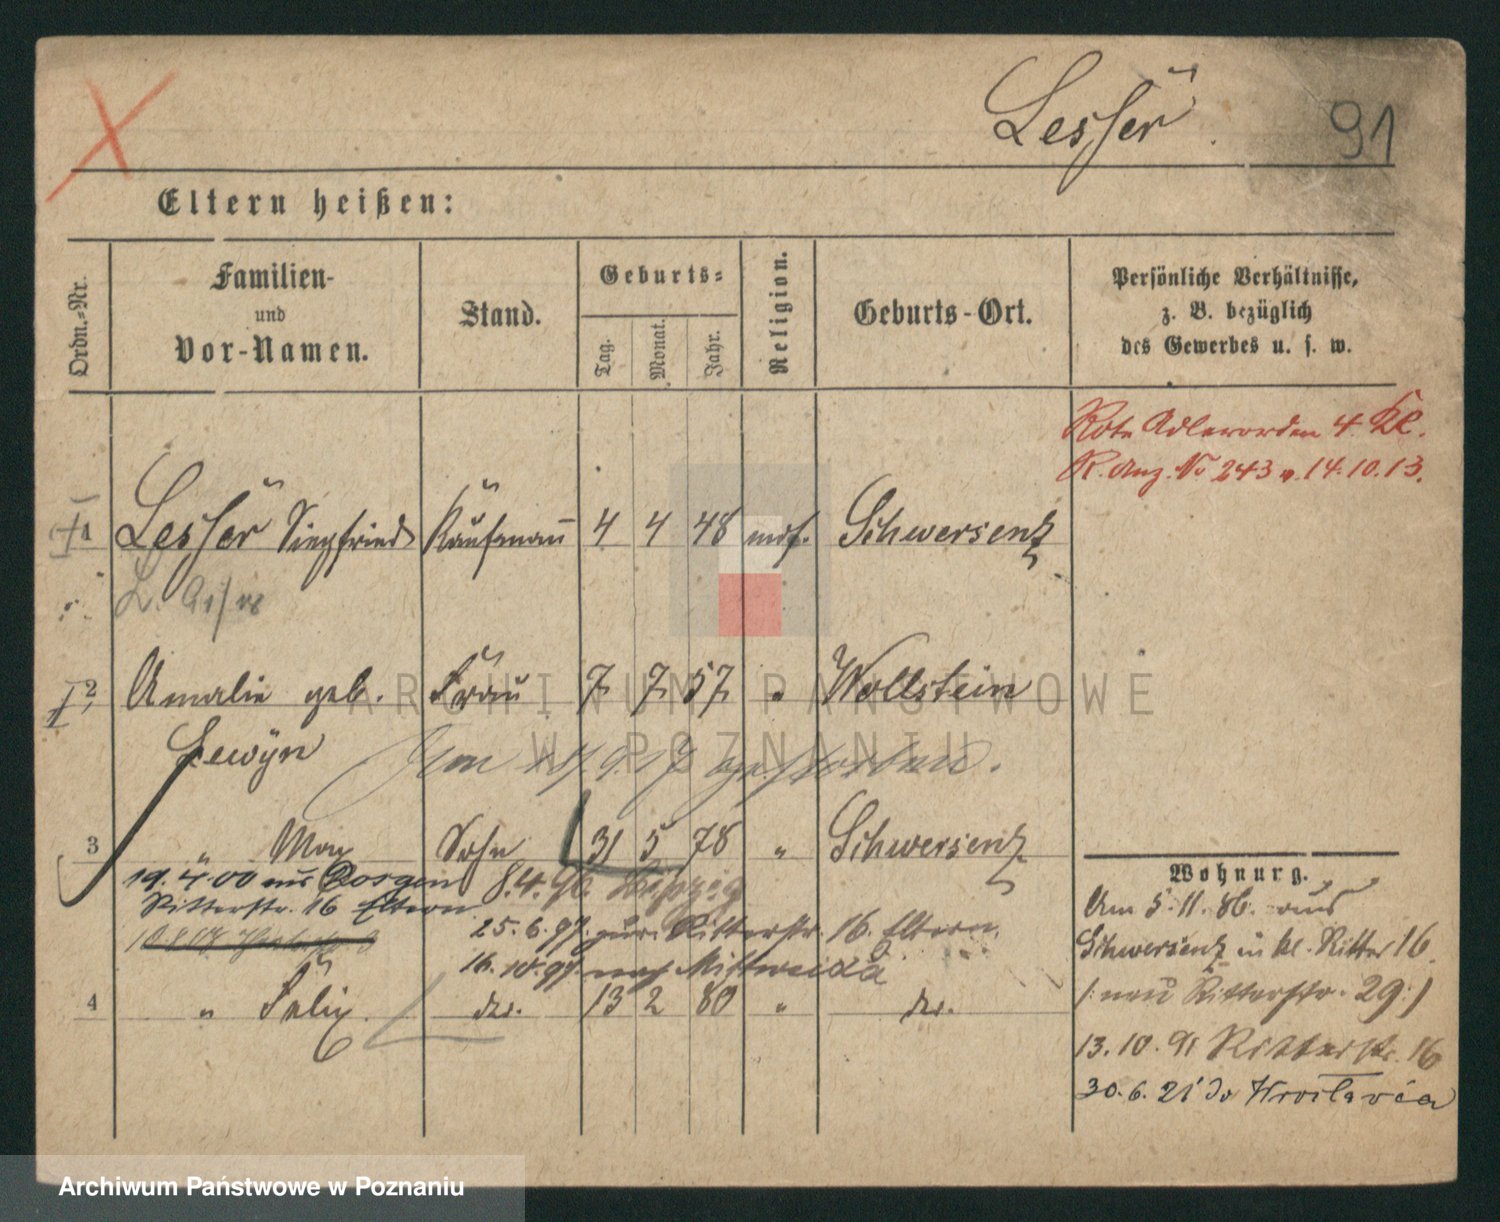 Lesser
91
Eltern heißen:
Ordn.-Nr.
Familien-
und
Vor-Namen.
Stand.
Geburts-
Tag.
Monat.
Jahr.
Religion.
Geburts-Ort.
Persönliche Verhältnisse,
z. B. bezüglich
des Gewerbes u. s. w.
Rote Adlerorden 4. Kl.
R. Anz. No 243 v. 14.10.13.
1 Lesser Siegfried Kaufmann 4 4 48 mos. Schwersenz
2 Amalie geb. Frau 7 7 57 " Wollstein
Lewÿn
Am 9.17 gestorben.
3 " Max Sohn 31 5 78 " Schwersenz
19.4.00 aus Posen 8.4.96 Leipzig
Ritterstr. 16 Eltern
25.6.97. zur. Ritterstr. 16. Eltern.
16.10.97 nach Mittweida
4 " Felix. do. 13 2 80 " do.
Wohnung.
Am 5.11.86. aus
Schwersenz in kl. Ritter 16.
(: neu Ritterstr. 29 :)
13.10.91 Ritterstr. 16
30.6.21 do Wrocławia
ARCHIWUM PAŃSTWOWE
W POZNANIU
Archiwum Państwowe w Poznaniu